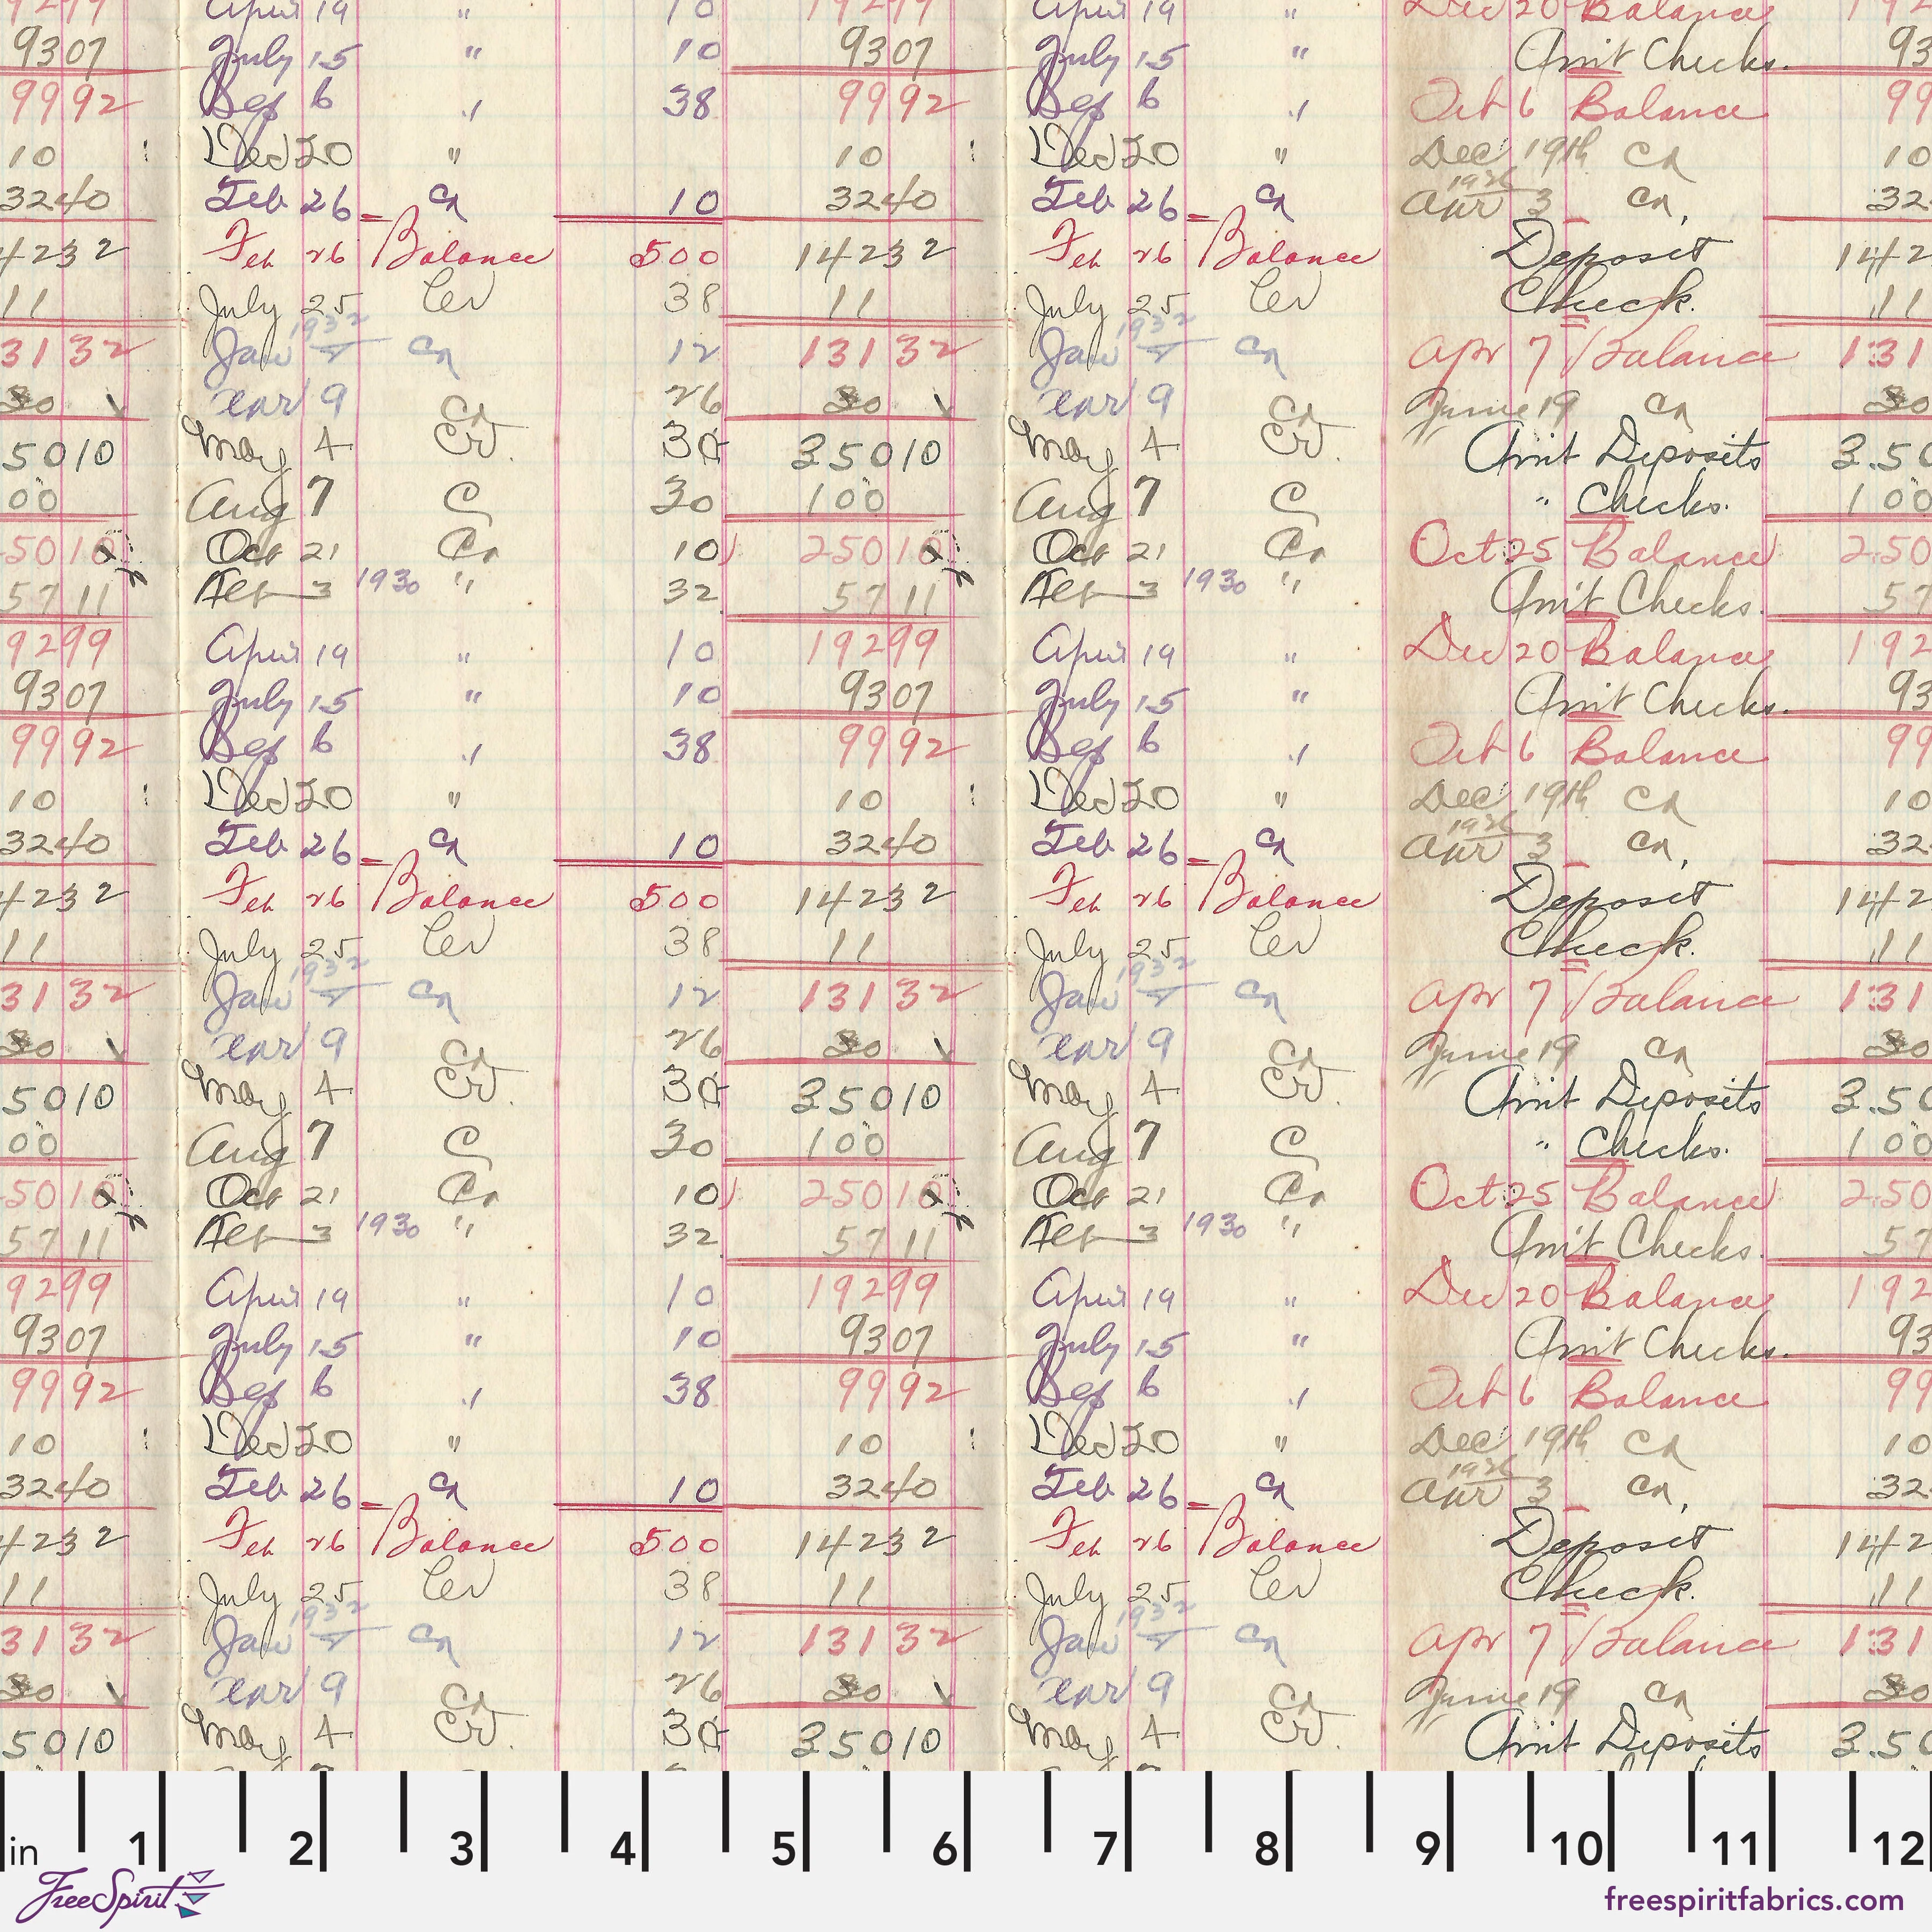 9299 April 19 " 10 19299 April 19 " Dec 20 Balance 192
9307 July 15 " 10 9307 July 15 " Amt Checks. 93
9992 Sep 6 " 38 9992 Sep 6 " Oct 6 Balance 99
10 Dec 20 " 10 Dec 20 " Dec 19th Cr 10
3240 Feb 26 Cr 10 3240 Feb 26 Cr Apr 3 Cr, 32
4232 Feb 26 Balance 500 14232 Feb 26 Balance Deposit 142
11 July 25 Cr 38 11 July 25 Cr Check. 11
3132 Jan 1932 Cr 12 13132 Jan 1932 Cr Apr 7 Balance 131
30 Mar 9 Cr 26 30 Mar 9 Cr June 19 Cr 30
5010 May 4 Cr. 30 35010 May 4 Cr. Amt Deposits 3.50
00 Aug 7 C 30 100 Aug 7 C " Checks. 100
5010 Oct 21 Cr 10 25010 Oct 21 Cr Oct 25 Balance 250
5711 3 1930 " 32 5711 3 1930 " Amt Checks. 57
9299 April 19 " 10 19299 April 19 " Dec 20 Balance 192
9307 July 15 " 10 9307 July 15 " Amt Checks. 93
9992 Sep 6 " 38 9992 Sep 6 " Oct 6 Balance 99
10 Dec 20 " 10 Dec 20 " Dec 19th Cr 10
3240 Feb 26 Cr 10 3240 Feb 26 Cr Apr 3 Cr, 32
4232 Feb 26 Balance 500 14232 Feb 26 Balance Deposit 142
11 July 25 Cr 38 11 July 25 Cr Check. 11
3132 Jan 1932 Cr 12 13132 Jan 1932 Cr Apr 7 Balance 131
30 Mar 9 Cr 26 30 Mar 9 Cr June 19 Cr 30
5010 May 4 Cr. 30 35010 May 4 Cr. Amt Deposits 3.50
00 Aug 7 C 30 100 Aug 7 C " Checks. 100
5010 Oct 21 Cr 10 25010 Oct 21 Cr Oct 25 Balance 250
5711 3 1930 " 32 5711 3 1930 " Amt Checks. 57
9299 April 19 " 10 19299 April 19 " Dec 20 Balance 192
9307 July 15 " 10 9307 July 15 " Amt Checks. 93
9992 Sep 6 " 38 9992 Sep 6 " Oct 6 Balance 99
10 Dec 20 " 10 Dec 20 " Dec 19th Cr 10
3240 Feb 26 Cr 10 3240 Feb 26 Cr Apr 3 Cr, 32
4232 Feb 26 Balance 500 14232 Feb 26 Balance Deposit 142
11 July 25 Cr 38 11 July 25 Cr Check. 11
3132 Jan 1932 Cr 12 13132 Jan 1932 Cr Apr 7 Balance 131
30 Mar 9 Cr 26 30 Mar 9 Cr June 19 Cr 30
5010 May 4 Cr. 30 35010 May 4 Cr. Amt Deposits 3.50
in 1 2 3 4 5 6 7 8 9 10 11 12
FreeSpirit
freespiritfabrics.com